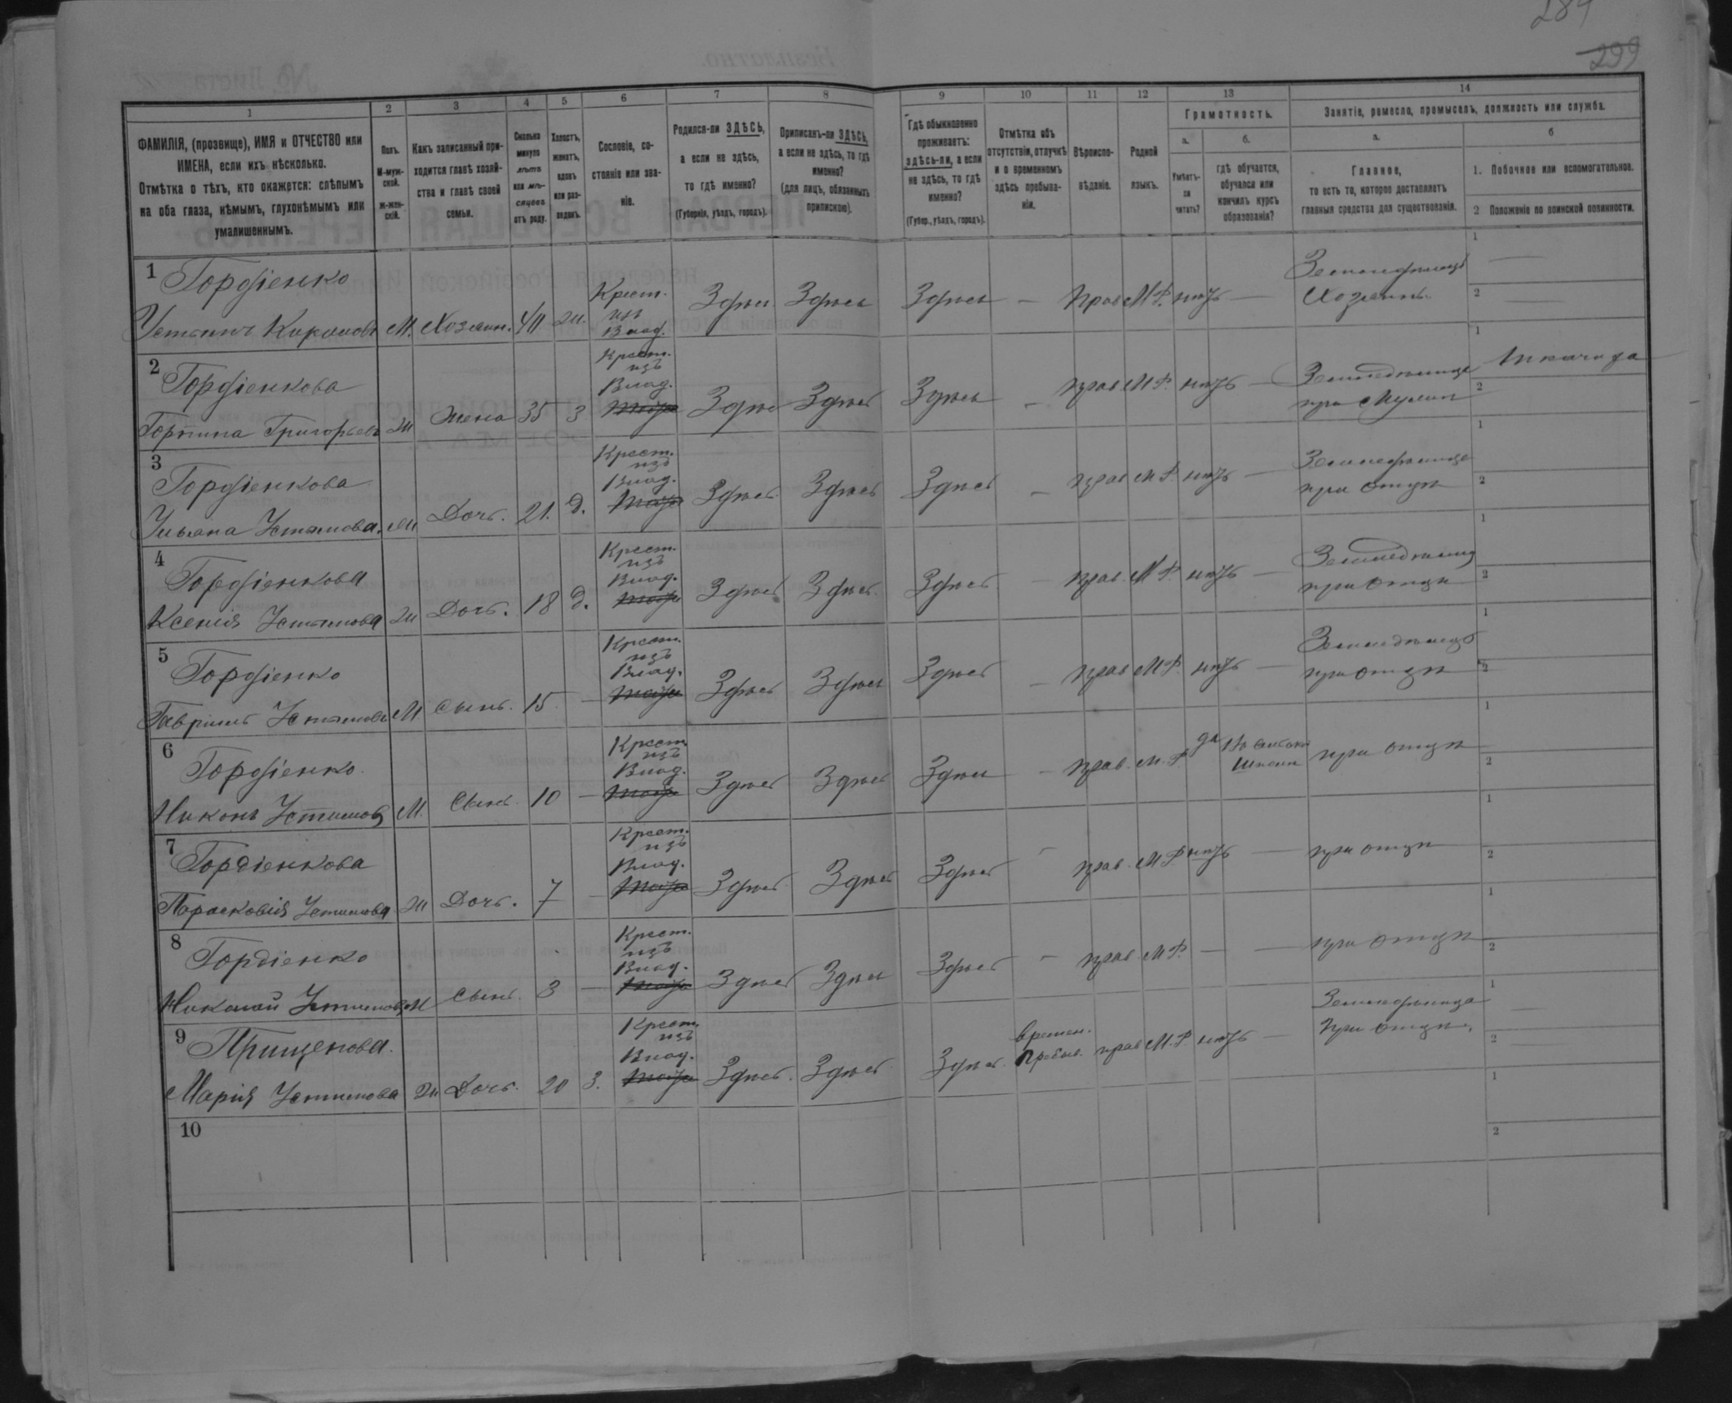 284
299
1 2 3 4 5 6 7 8 9 10 11 12 13 14
ФАМИЛІЯ, (прозвище), ИМЯ и ОТЧЕСТВО или
ИМЕНА, если ихъ нѣсколько.
Отмѣтка о тѣхъ, кто окажется: слѣпымъ
на оба глаза, нѣмымъ, глухонѣмымъ или
умалишеннымъ.
Полъ.
М-муж-
ской.
ж-жен-
скій.
Какъ записанный при-
ходится главѣ хозяй-
ства и главѣ своей
семьи.
Сколько
минуло
лѣтъ
или мѣ-
сяцевъ
отъ роду.
Холостъ,
женатъ,
вдовъ
или раз-
веденъ.
Сословіе, со-
стояніе или зва-
ніе.
Родился-ли ЗДѢСЬ,
а если не здѣсь,
то гдѣ именно?
(Губернія, уѣздъ, городъ).
Приписанъ-ли ЗДѢСЬ,
а если не здѣсь, то гдѣ
именно?
(для лицъ, обязанныхъ
припискою).
Гдѣ обыкновенно
проживаетъ:
здѣсь-ли, а если
не здѣсь, то гдѣ
именно?
(Губер., уѣздъ, городъ).
Отмѣтка объ
отсутствіи, отлучкѣ
и о временномъ
здѣсь пребыва-
ніи.
Вѣроиспо-
вѣданіе.
Родной
языкъ.
Грамотность.
а.
Умѣетъ-
ли
читать?
б.
гдѣ обучается,
обучался или
кончилъ курсъ
образованія?
Занятіе, ремесло, промыселъ, должность или служба.
а.
Главное,
то есть то, которое доставляетъ
главныя средства для существованія.
б
1. Побочное или вспомогательное.
2 Положеніе по воинской повинности.
1 Гордіенко
Устинъ М. Хозяин. ж. Крест. изъ Влад. Здѣсь Здѣсь Здѣсь — Прав М.Р. нѣтъ — Земледѣлецъ Хозяинъ
2 Гордіенкова
Горпина Григорьева ж Жена 35 З Крест. изъ Влад. Здѣсь Здѣсь Здѣсь — прав М.Р. нѣтъ — Земледѣлица при Мужѣ
3 Гордіенкова
Ульяна Устимова. ж Дочь. 21. Д. Крест. изъ Влад. Здѣсь Здѣсь Здѣсь — прав М.Р. нѣтъ — Земледѣлица при отцѣ
4 Гордіенкова
Ксенія Устимова ж Дочь. 18 Д. Крест. изъ Влад. Здѣсь Здѣсь Здѣсь — прав М.Р. нѣтъ — при отцѣ
5 Гордіенко
Гавриилъ Устимовъ М сынъ. 15 — Крест. изъ Влад. Здѣсь Здѣсь Здѣсь — прав М.Р. нѣтъ — Земледѣлецъ при отцѣ
6 Гордіенко.
Никонъ Устимовъ М. Сынъ. 10 — Крест. изъ Влад. Здѣсь Здѣсь Здѣсь — прав. М.Р. да школѣ при отцѣ
7 Гордіенкова
Парасковія Устимова ж Дочь. 7 — Крест. изъ Влад. Здѣсь Здѣсь Здѣсь — прав. М.Р. нѣтъ — при отцѣ
8 Гордіенко
Николай Устимовъ М сынъ. 3 — Крест. изъ Влад. Здѣсь Здѣсь Здѣсь — прав М.Р. — — при отцѣ
9 Прищепова.
Марія Устимова ж Дочь. 20 З. Крест. изъ Влад. Здѣсь. Здѣсь Здѣсь. времен. пребыв. прав М.Р. нѣтъ — Земледѣлица При отцѣ.
10